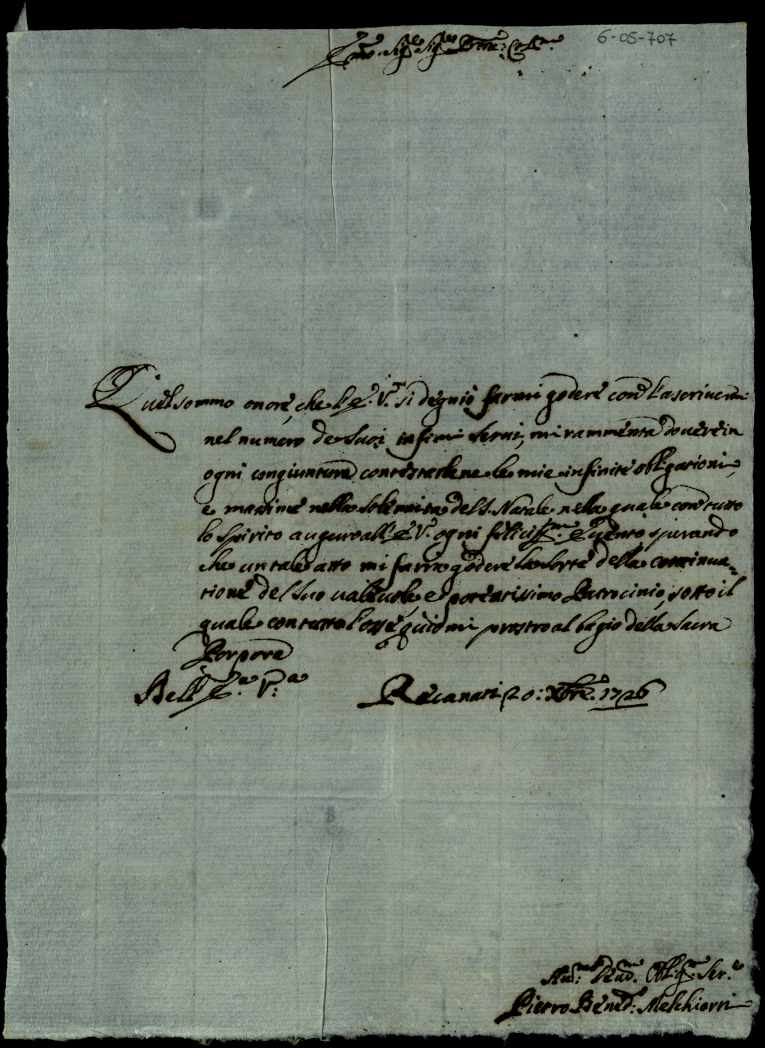 6-05-707
Em.mo Sig.re Sig.re Pron: Col.mo
Quel sommo onore, che l'E. V.ra si degnò farmi godere con l'ascrivermi
nel numero de Suoi infimi Servi, mi rammenta dovere in
ogni congiuntura contestarlene le mie infinite obligationi,
e masime nella Solennità del S. Natale nella quale con tutto
lo Spirito auguro all'E. V. ogni feliciss.mo Evento sperando
che un tale atto mi farrà godere la sorte della continua-
tione del Suo valevole e potentissimo Patrocinio, sotto il
quale con tutto l'ossequio mi prostro al bagio della Sacra
Porpora
Dell'E.a V.a
Recanati 20: Xbre. 1726
Hu.mo Dev.mo Obl.g.mo Ser.e
Pietro Bened: Melchiorri